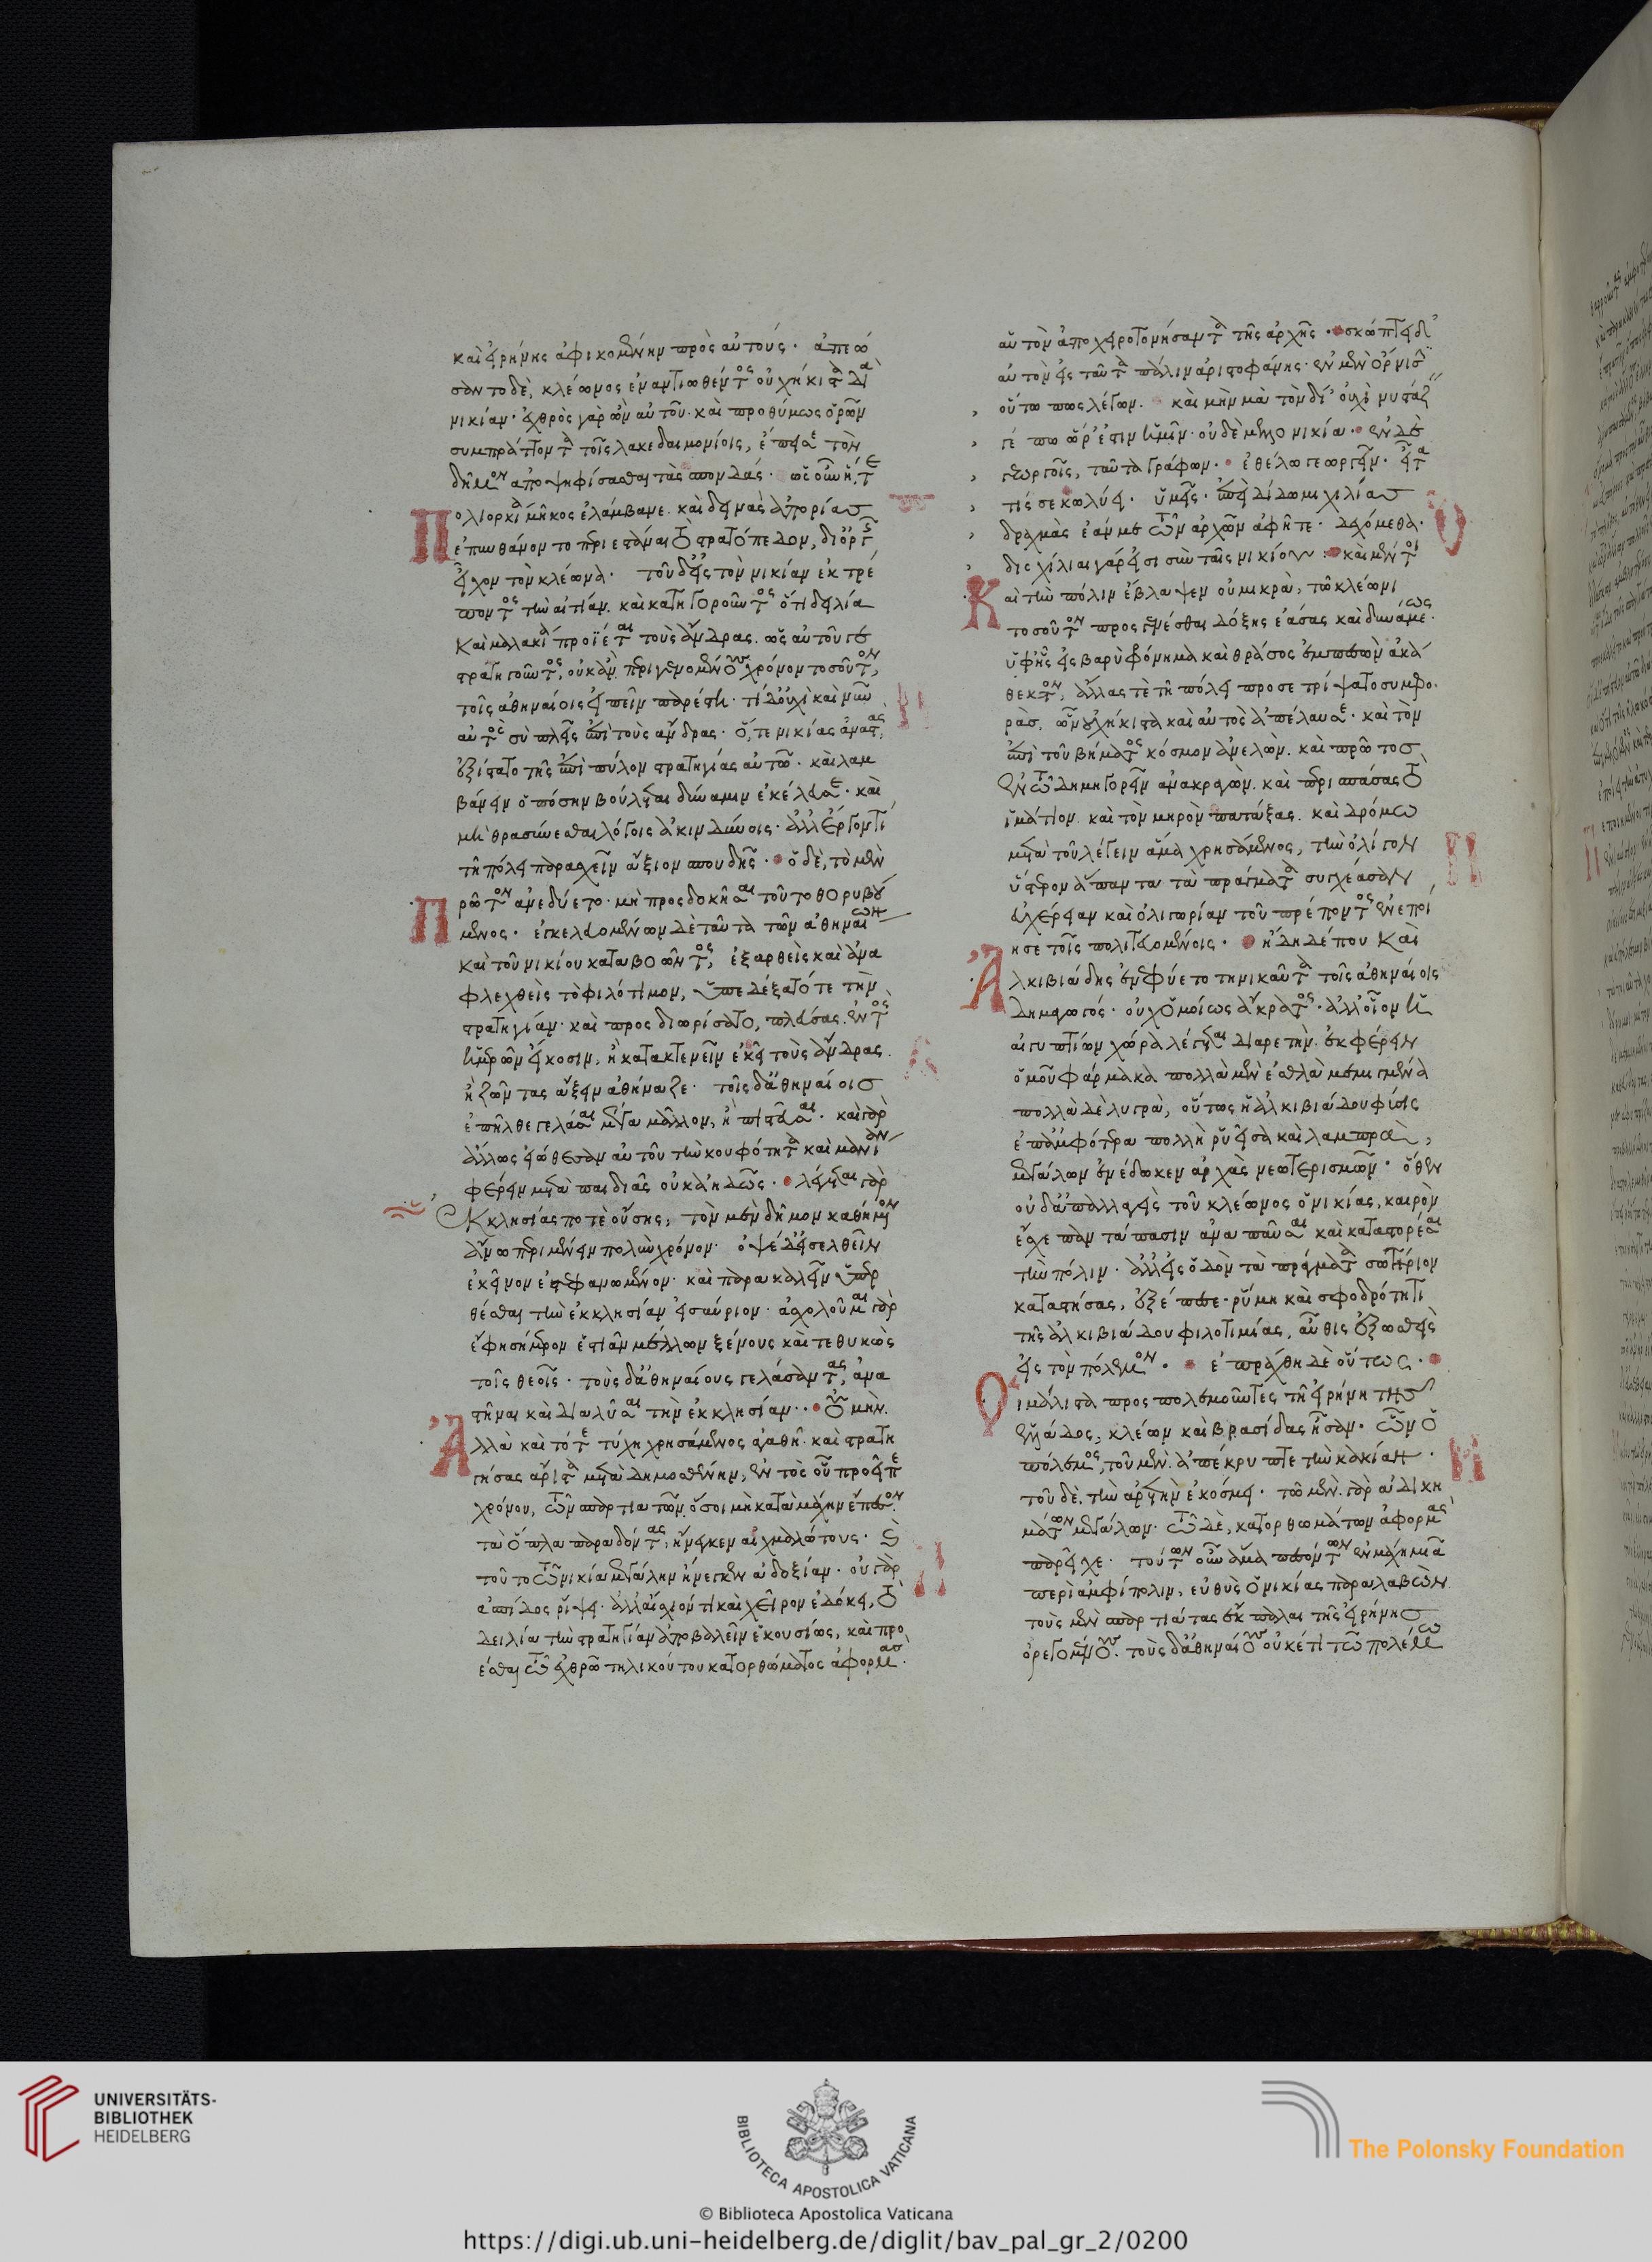 καὶ εἰρήνης ἀφικομένην πρὸς αὐτούς. ἀπεώ
σαντο δὲ, κλέωνος ἐναντιωθέντος οὐχ ἥκιστα διὰ
νικίαν. ἐχθρὸς γὰρ ὢν αὐτοῦ. καὶ προθύμως ὁρῶν
συμπράττοντα τοῖς λακεδαιμονίοις, ἔπεισε τὸν
δῆμον ἀποψηφίσασθαι τὰς σπονδάς. ὡς οὖν ἥ,τε
Πολιορκία μῆκος ἐλάμβανε. καὶ δεινὰς ἀπορίας
ἐπυνθάνοντο περιεστάναι τὸ στρατόπεδον, δι' ὀργῆς
εἶχον τὸν κλέωνα. τοῦ δ' εἰς τὸν νικίαν ἐκτρέ
ποντος τὴν αἰτίαν. καὶ κατηγοροῦντος ὅτι δειλία
καὶ μαλακία προΐεται τοὺς ἄνδρας. ὡς αὐτοῦ γε σ
τρατηγοῦντος, οὐκ ἂν περιγενομένους χρόνον τοσοῦτον,
τοῖς ἀθηναίοις εἰπεῖν παρέστη. τί δ' οὐχὶ καὶ νῦν
αὐτὸς σὺ πλεῖς ἐπὶ τοὺς ἄνδρας. ὅ,τε νικίας ἀναστὰς,
ἐξίστατο τῆς ἐπὶ πύλον στρατηγίας αὐτῶ. καὶ λαμ
βάνειν ὁπόσην βούλεται δύναμιν ἐκέλευσε. καὶ
μὴ θρασύνεσθαι λόγοις ἀκινδύνοις. ἀλλ' ἔργον τί
τῆ πόλει παρασχεῖν ἄξιον σπουδῆς. ὁ δὲ, τὸ μὲν
Πρῶτον ἀνεδύετο. μὴ προσδοκῆσαι τοῦτο θορυβού
μενος. ἐγκελευομένων δὲ ταῦτα τῶν ἀθηναίων
καὶ τοῦ νικίου καταβοῶντος, ἐξαρθεὶς καὶ ἅμα
φλεχθεὶς τὸ φιλότιμον, ὑπεδέξατό τε τὴν
στρατηγίαν. καὶ προσδιωρίσατο, πλεύσας. ἐντὸς
ἡμερῶν εἴκοσιν, ἢ κατακτενεῖν ἐκεῖ τοὺς ἄνδρας
ἢ ζῶντας ἄξειν ἀθήναζε. τοῖς δ' ἀθηναίοις
ἐπῆλθε γελάσαι μέγα μᾶλλον, ἢ πιστεῦσαι. καὶ γὰρ
ἄλλως εἰώθεσαν αὐτοῦ τὴν κουφότητα καὶ μανίαν
φέρειν μετὰ παιδιᾶς οὐκ ἀηδῶς. λέγεται γὰρ
ἐκκλησίας ποτὲ οὔσης, τὸν μὲν δῆμον καθήμενον
ἄνω περιμένειν πολὺν χρόνον. ὀψὲ δ' εἰσελθεῖν
ἐκεῖνον ἐστεφανωμένον. καὶ παρακαλεῖν ὑπερ
θέσθαι τὴν ἐκκλησίαν εἰς αὔριον. ἀσχολοῦμαι γὰρ
ἔφη σήμερον ἑστιᾶν μέλλων ξένους καὶ τεθυκὼς
τοῖς θεοῖς. τοὺς δ' ἀθηναίους γελάσαντας, ἀνα
στῆναι καὶ διαλῦσαι τὴν ἐκκλησίαν. οὐ μὴν.
Ἀλλὰ καὶ τότε τύχη χρησάμενος ἀγαθῆ. καὶ στρατη
γήσας ἄριστα μετὰ δημοσθένην, ἐντὸς οὗ προεῖπε
χρόνου, τῶν σπαρτιατῶν. ὅσοι μὴ κατὰ μάχην ἔπεσον.
τὰ ὅπλα παραδόντας, ἤγαγεν αἰχμαλώτους. καὶ
τοῦτο τῶ νικία μεγάλην ἤνεγκεν ἀδοξίαν. οὐ γὰρ
ἀσπίδος ῥίψει. ἀλλ' αἴσχιόν τι καὶ χεῖρον ἐδόκει, τὸ
δειλία τὴν στρατηγίαν ἀποβαλεῖν ἑκουσίως, καὶ προ
έσθαι τῶ ἐχθρῶ τηλικούτου κατορθώματος ἀφορμάς.
αὑτὸν ἀποχειροτονήσαντα τῆς ἀρχῆς. σκώπτει δ'
αὐτὸν εἰς ταῦτα πάλιν ἀριστοφάνης. ἐν μὲν ὄρνισι
οὕτω πως λέγων. καὶ μὴν μὰ τὸν δί' οὐχὶ νυστάζ
γέ πω ὥρ' ἐστιν ἡμῖν. οὐδὲ μελλονικίαν. ἐν δὲ
γεωργοῖς, ταῦτα γράφων. ἐθέλω γεωργεῖν. εἶτα
τίς σε κωλύει. ὑμεῖς. ἐπεὶ δίδωμι χιλίας
δραχμὰς ἐάν με τῶν ἀρχῶν ἀφῆτε. δεχόμεθα.
δισχίλιαι γάρ εἰσι σὺν ταῖς νικίου: καὶ μέντοι
Καὶ τὴν πόλιν ἔβλαψεν οὐ μικρὰ, τῶ κλέωνι
τοσοῦτον προσγενέσθαι δόξης ἐάσας καὶ δυνάμεως.
ὑφ' ἧς εἰς βαρὺ φρόνημα καὶ θράσος ἐμπεσὼν ἀκά
θεκτον, ἄλλας τὲ τῆ πόλει προσετρίψατο συμφο
ράς. ὧν οὐχ ἥκιστα καὶ αὐτὸς ἀπέλαυσε. καὶ τὸν
ἐπὶ τοῦ βήματος κόσμον ἀνελών. καὶ πρῶτος
ἐν τῶ δημηγορεῖν ἀνακραγών. καὶ περισπάσας τὸ
ἱμάτιον. καὶ τὸν μηρὸν πατάξας. καὶ δρόμω
μετὰ τοῦ λέγειν ἅμα χρησάμενος, τὴν ὀλίγον
ὕστερον ἅπαντα τὰ πράγματα συγχέασαν
εὐχέρειαν καὶ ὀλιγωρίαν τοῦ πρέποντος ἐνεποί
ησε τοῖς πολιτευομένοις. ἤδη δέ που καὶ
Ἀλκιβιάδης ἐνεφύετο τηνικαῦτα τοῖς ἀθηναίοις
δημαγωγός. οὐχ ὁμοίως ἄκρατος. ἀλλ' οἷον ἡ
αἰγυπτίων χώρα λέγεται δι' ἀρετὴν. ἐκφέρειν
ὁμοῦ φάρμακα πολλὰ μὲν ἐσθλὰ μεμιγμένα
πολλὰ δὲ λυγρὰ, οὕτως ἡ ἀλκιβιάδου φύσις
ἐπ' ἀμφότερα πολλὴ ῥυεῖσα καὶ λαμπρὰ,
μεγάλων ἐνέδωκεν ἀρχὰς νεωτερισμῶν. ὅθεν
οὐδ' ἀπαλλαγεὶς τοῦ κλέωνος ὁ νικίας, καιρὸν
ἔσχε παντάπασιν ἀναπαῦσαι καὶ καταστορέσαι
τὴν πόλιν. ἀλλ' εἰς ὁδὸν τὰ πράγματα σωτήριον
καταστήσας, ἐξέπεσε. ῥύμη καὶ σφοδρότητι
τῆς ἀλκιβιάδου φιλοτιμίας, αὖθις ἐξωσθεὶς
εἰς τὸν πόλεμον. ἐπράχθη δὲ οὕτως.
Οἱ μάλιστα προσπολεμοῦντες τῆ εἰρήνη τῆς
ἑλλάδος, κλέων καὶ βρασίδας ἦσαν. ὧν ὁ
πόλεμος, τοῦ μὲν. ἀπέκρυπτε τὴν κακίαν.
τοῦ δὲ. τὴν ἀρετὴν ἐκόσμει. τῶ μὲν. γὰρ ἀδικη
μάτων μεγάλων. τῶ δὲ, κατορθωμάτων ἀφορμὰς
παρεῖχε. τούτων οὖν ἅμα πεσόντων ἐν μάχη μιᾶ
περὶ ἀμφίπολιν, εὐθὺς ὁ νικίας παραλαβὼν
τοὺς μὲν σπαρτιάτας ἐκ πάλαι τῆς εἰρήνης
ὀρεγομένους. τοὺς δ' ἀθηναίους οὐκέτι τῶ πολέμω
UNIVERSITÄTS-
BIBLIOTHEK
HEIDELBERG
BIBLIOTECA APOSTOLICA VATICANA
The Polonsky Foundation
© Biblioteca Apostolica Vaticana
https://digi.ub.uni-heidelberg.de/diglit/bav_pal_gr_2/0200